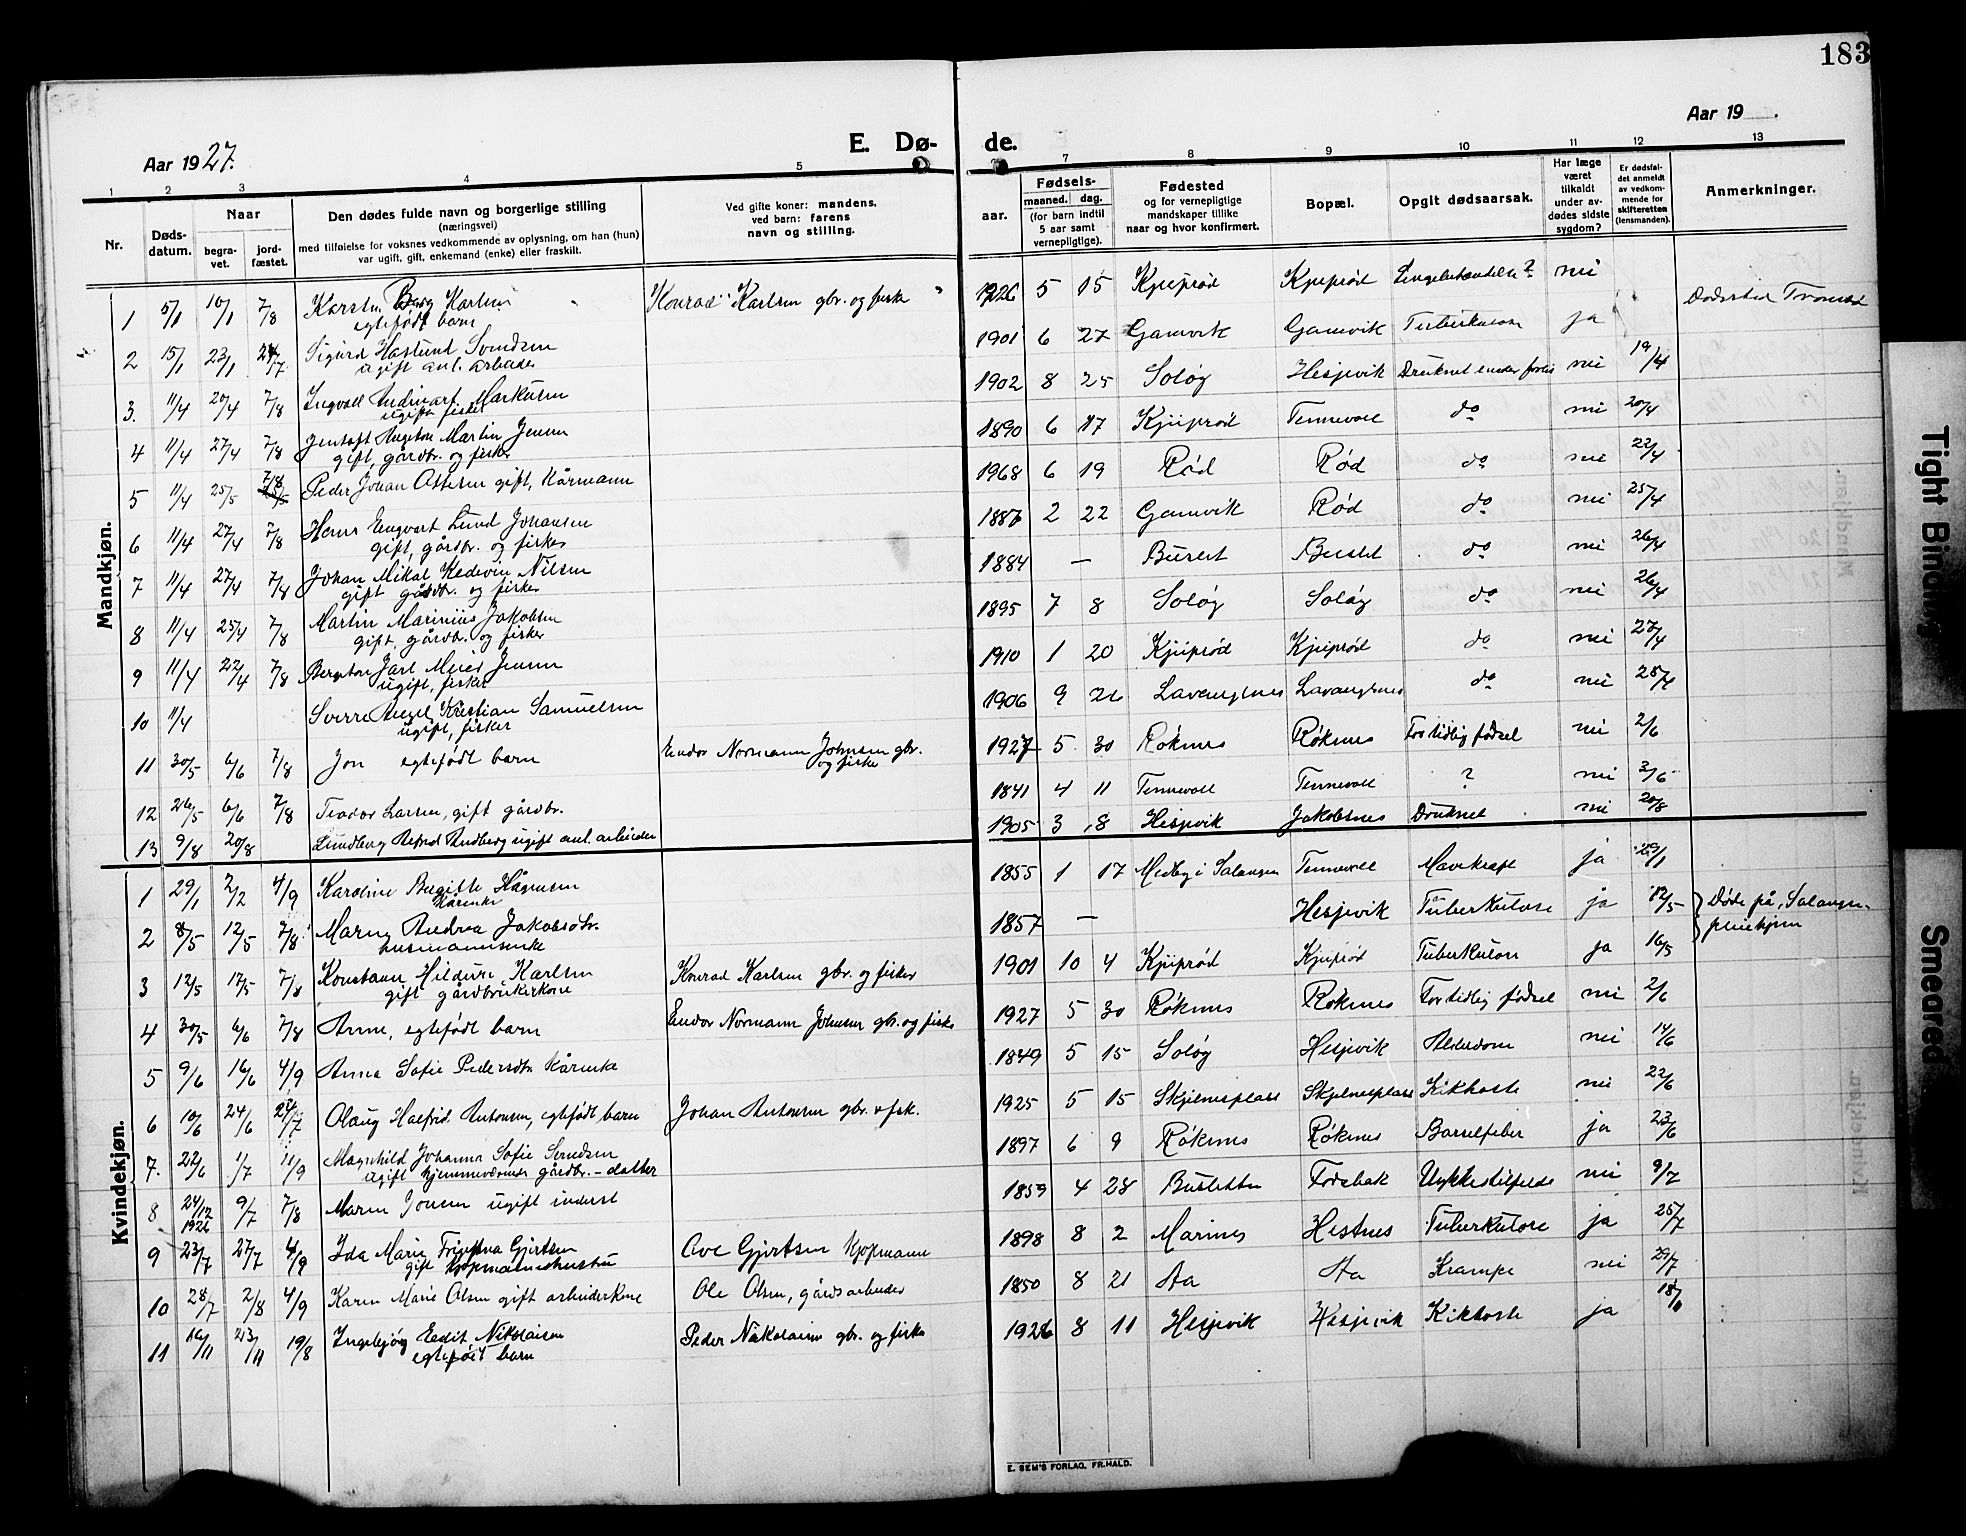 183
Aar 1927.
E. Dø-
de.
Aar 19 .
1 2 3 4 5 7 8 9 10 11 12 13
Nr.
Døds-
datum.
Naar
begra-
vet.
jord-
fæstet.
Den dødes fulde navn og borgerlige stilling
(næringsvei)
med tilføielse for voksnes vedkommende av oplysning, om han (hun)
var ugift, gift, enkemand (enke) eller fraskilt.
Ved gifte koner: mandens.
ved barn: farens
navn og stilling.
aar.
Fødsels-
maaned. dag.
(for barn indtil
5 aar samt
vernepligtige).
Fødested
og for vernepligtige
mandskaper tillike
naar og hvor konfirmert.
Bopæl.
Opgit dødsaarsak.
Har læge
været
tilkaldt
under av-
dødes sidste
sygdom?
Er dødsfal-
det anmeldt
av vedkom-
mende for
skifteretten
(lensmanden).
Anmerkninger.
Mandkjøn.
1 5/1 10/1 7/8 Karsten Berg Karlsen Konrad Karlsen gbr. og fisker 1926 5 15 Kjeiprød Kjeiprød nei
egtefødt barn
2 15/1 23/1 24/7 Sigurd Haslund Svendsen 1901 6 27 Gamvik Gamvik Tuberkulose ja Dødssted Tromsø
ugift anl. arbeider
3. 11/4 20/4 7/8 Ingvall Markusen 1902 8 25 Soløy Hesjevik Druknet under forlis nei 19/4
ugift fisker
4 11/4 27/4 7/8 Jentoft Angeton Martin Jensen 1890 6 17 Kjeiprød Tennevoll do nei 20/4
gift, gårdbr. og fisker
5 11/4 25/5 7/8 Peder Johan Ottesen gift, Kårmann 1968 6 19 Rød Rød do nei 22/4
6 11/4 27/4 7/8 Hans Engvart Lund Johansen 1886 2 22 Gamvik Rød do nei 25/4
gift, gårdbr. og fisker
7 11/4 27/4 7/8 Johan Mikal Hedevin Nilsen 1884 — Buset do nei 26/4
gift gårdbr. og fisker
8 11/4 25/4 7/8 Martin Marinius Jakobsen 1895 7 8 Soløy Soløy do nei 26/4
gift, gårdbr. og fisker
9 11/4 22/4 7/8 Bergeton Jarl Meier Jensen 1910 1 20 Kjeiprød Kjeiprød do nei 27/4
ugift, fisker
10 11/4 Sverre Angel Kristian Samuelsen 1906 9 26 Lavangsnes Lavangsnes do nei 25/4
ugift, fisker
11 30/5 6/6 7/8 Jon egtefødt barn Endor Normann Johnsen gbr. 1927 5 30 Røknes Røknes For tidlig fødsel nei 2/6
og fisker
12 26/5 6/6 7/8 Teodor Larsen, gift gårdbr. 1841 4 11 Tennevoll Tennevoll ? nei 3/6
13 9/8 20/8 Lundberg Alfred Andberg ugift anl. arbeider 1905 3 8 Hesjevik Jakobsnes Druknet nei 20/8
Kvindekjøn.
1 29/1 2/2 4/9 Karoline Birgitte Hågensen 1855 1 17 Medby i Salangen Tennevoll Mavekræft ja 29/1
Kårenke
2 8/5 12/5 7/8 Maren Andrea Jakobsdtr. 1857 — Hesjevik Tuberkulose ja 12/5 Døde på Salangen
husmannsenke pleiehjem
3 12/5 17/5 7/8 Konstanse Hildure Karlsen Konrad Karlsen gbr. og fisker 1901 10 4 Kjeiprød Kjeiprød Tuberkulose ja 16/5
gift gårdbrukerkone
4 30/5 6/6 7/8 Anne, egtefødt barn Endor Normann Johnsen gbr. og fisker 1927 5 30 Røknes Røknes For tidlig fødsel nei 2/6
5 9/6 16/6 4/9 Anna Sofie Pedersdtr. Kårenke 1849 5 15 Soløy Hesjevik Alderdom nei 14/6
6 10/6 24/6 24/7 Olaug Halfrid Antonsen, egtefødt barn Johan Antonsen gbr. & fisk. 1925 5 15 Skjelnesplass Skjelnesplass Kikhoste nei 22/6
7. 22/6 1/7 11/9 Magnhild Johanna Sofie Svendsen 1897 6 9 Røknes Røknes Barselfeber ja 23/6
ugift hjemmeværende gårdbr.-datter
8 24/12 1926 9/7 7/8 Maren Jonsen ugift inderst 1859 4 28 Busletten Forsbak Ulykkestilfelde nei 9/7
9 23/7 27/7 4/9 Ida Marie Gjertsen Ove Gjertsen Kjøpmann 1898 8 2 Marines Hestnes Tuberkulose ja 25/7
gift kjøpmannshustru
10 28/7 2/8 4/9 Karen Marie Olsen gift arbeiderkone Ole Olsen, gårdsarbeider 1850 8 21 Aa Aa Krampe nei 29/7
11 16/11 23/11 19/8 Ingebjørg Eedit Nikolaisen Peder Nikolaisen gbr. og fisker 1926 8 11 Hesjevik Hesjevik Kikhoste ja 18/11
egtefødt barn
E. SEM'S FORLAG, FR.HALD.
Tight Binding
Smeared